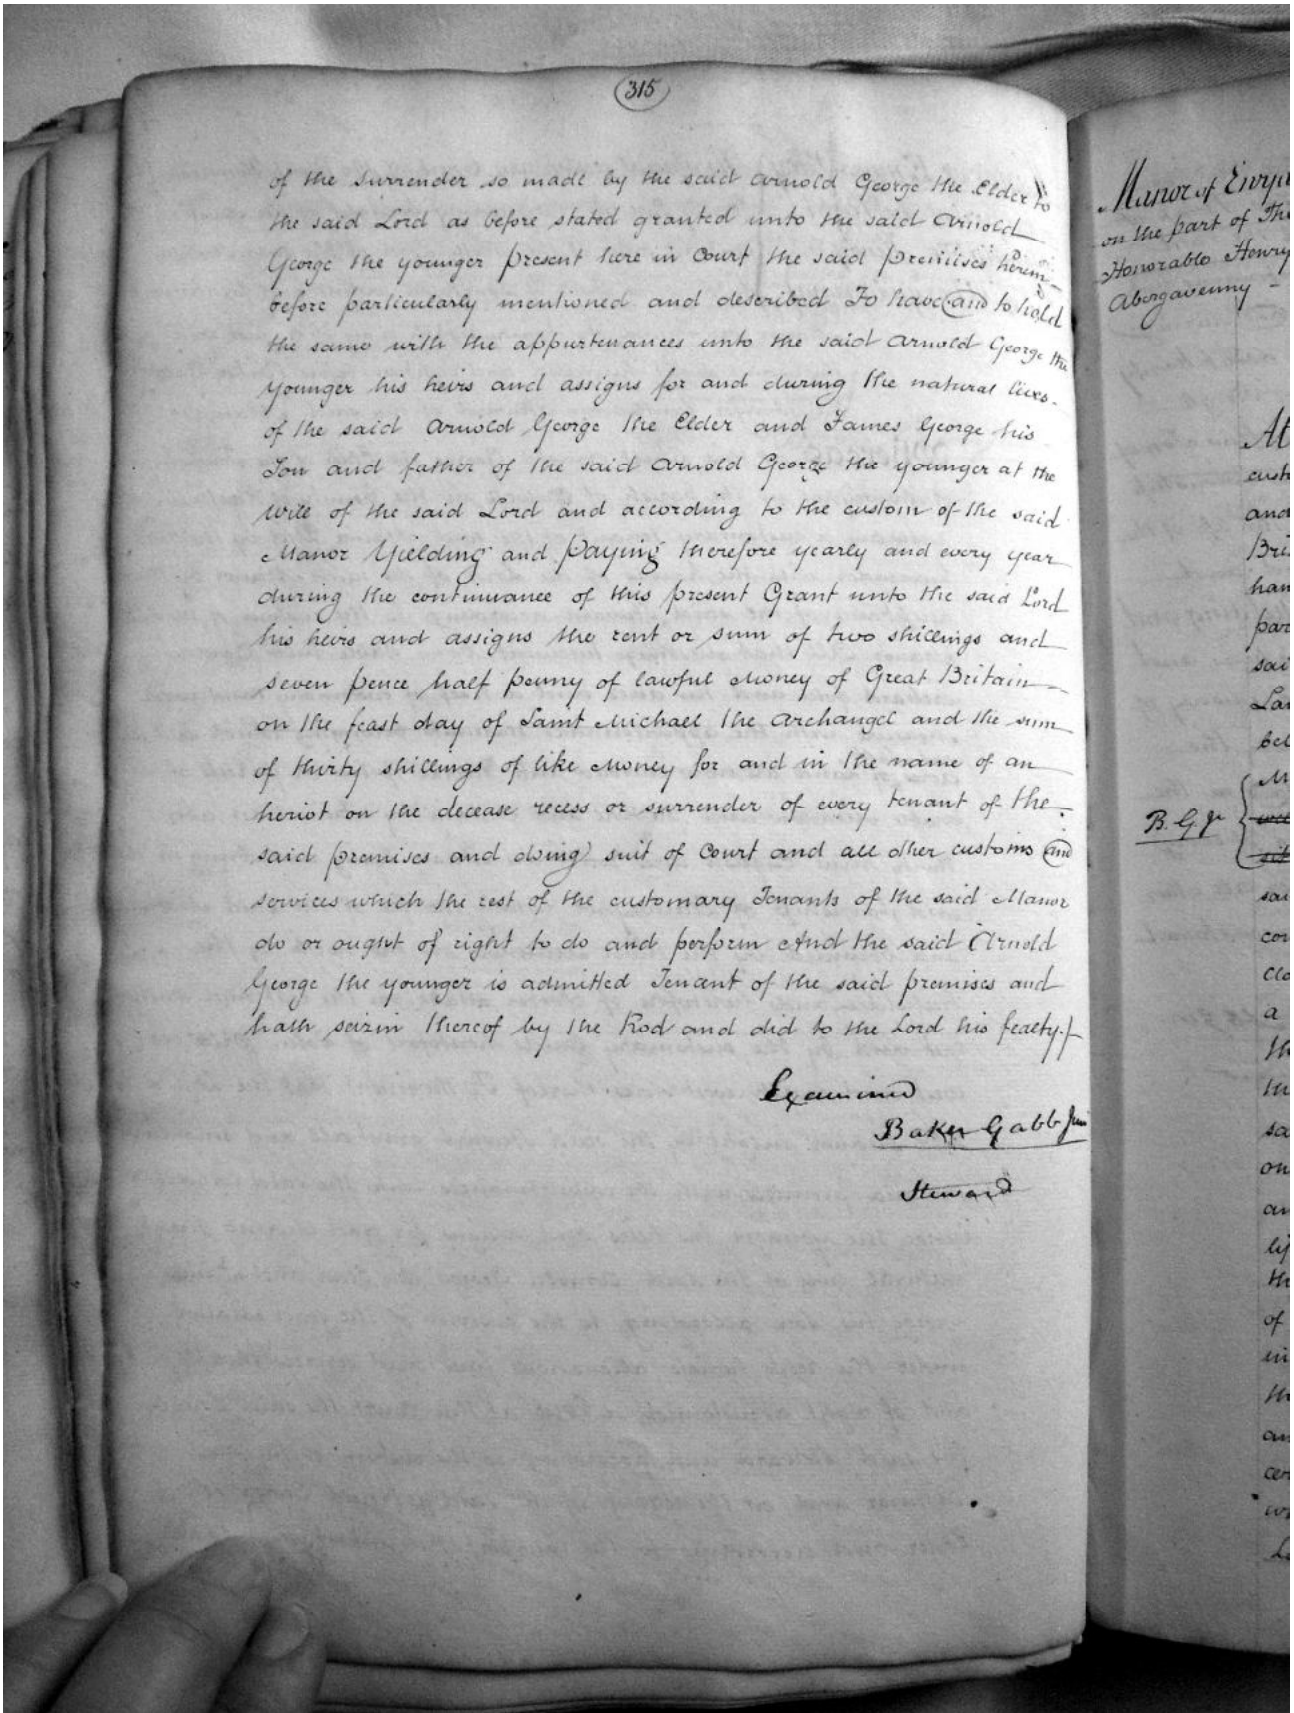 315
of the surrender so made by the said Arnold George the Elder to
the said Lord as before stated granted unto the said Arnold
George the younger present here in Court the said premises herein
before particularly mentioned and described To have and to hold
the same with the appurtenances unto the said Arnold George the
younger his heirs and assigns for and during the natural lives
of the said Arnold George the Elder and James George his
Son and father of the said Arnold George the younger at the
will of the said Lord and according to the custom of the said
Manor Yielding and Paying therefore yearly and every year
during the continuance of this present Grant unto the said Lord
his heirs and assigns the rent or sum of two shillings and
seven pence half penny of lawful Money of Great Britain
on the feast day of Saint Michael the Archangel and the sum
of thirty shillings of like Money for and in the name of an
heriot on the decease recess or surrender of every tenant of the
said premises and doing suit of Court and all other customs and
services which the rest of the customary Tenants of the said Manor
do or ought of right to do and perform And the said Arnold
George the younger is admitted Tenant of the said premises and
hath seizin thereof by the Rod and did to the Lord his fealty
Examined
Baker Gabb Jun
Steward
Manor of
on the part of The
Honorable Henry
Abergavenny
At
and
B. G. Jr
a
on
of